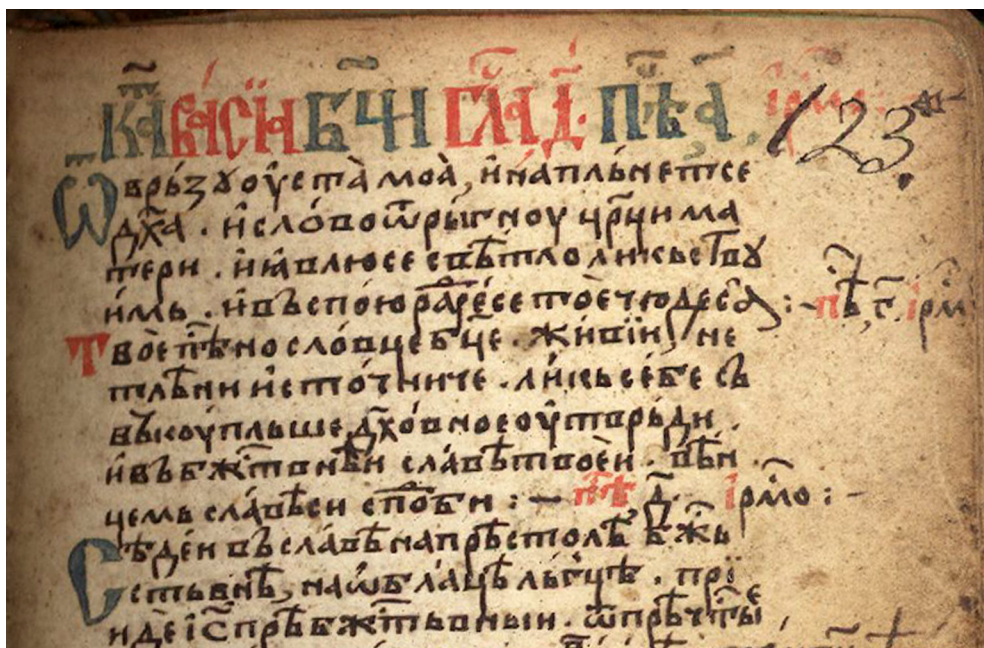 Катаваⷭ҇їа б҃ци гла́ д҃. пѣ́ а҃. і҆рмо 123
Ѿврьзꙋ оу҆ста̀ моа̀, и҆ напль́нетсе
дх҃а. и҆ сло́во ѿры́гноу цр҃ци ма
тери. и҆ ꙗ҆влюсе свѣ́тло ликьствꙋ
и҆мь. и҆ въспою̀ ра́дꙋесе то̀е чюдеса̀ :- пѣ́ г҃. і҆рмо
Твоѐ пѣ́снословце бц҃е. живїи҆ не
тлѣ́нни и҆сто́чниче. ли́кь себѐ съ
въкоу́пльше дх҃о́вное оу҆тврьди.
и҆ въ бжⷭ҇твнѣ́и сла́вѣ твоѐи. вѣ́н
цемь сла́вѣси сподо́би :— пѣ́ д҃. і҆рмо :-
Сѣде́и въ сла́вѣ на прѣстолѣ̀ бж҃ь
стьвнѣ̀, на ѡ҆́блацѣ льгцѣ̀. прїи
и҆де і҆с҃ прѣбжⷭ҇тьвныи. ѿ прѣчⷭ҇тые